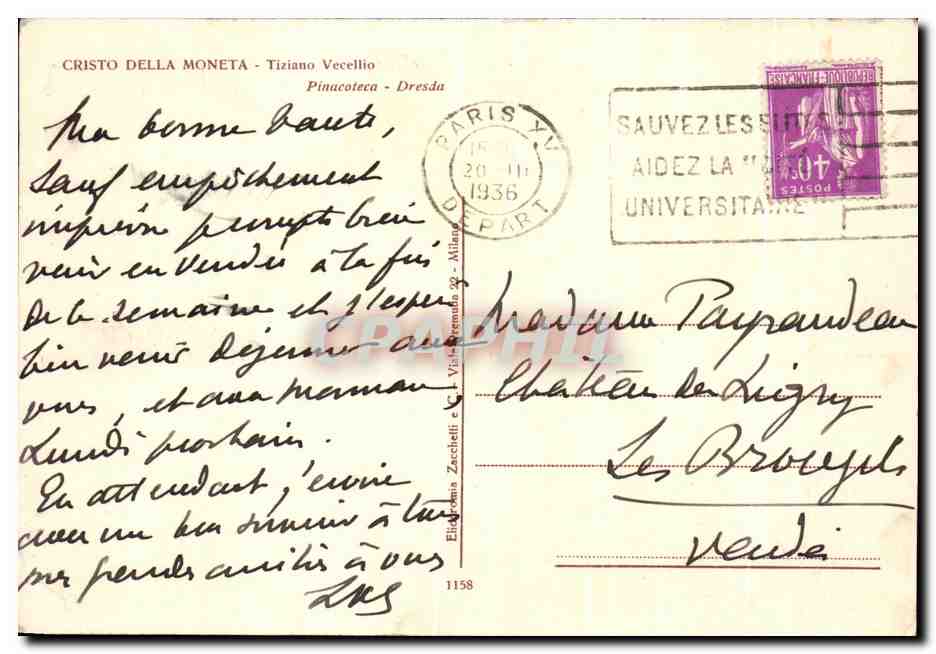 CRISTO DELLA MONETA - Tiziano Vecellio
Pinacoteca - Dresda
Ma bonne Tante,
Sauf empêchement
imprévu je compte bien
venir en Vendée à la fin
de la semaine et j'espère
bien venir déjeuner avec
vous, et avec Maman,
Lundi prochain.
En attendant, j'envoie
avec un bon souvenir à tous
mes grandes amitiés à vous
PARIS XV
20 - III
1936
DEPART
SAUVEZ LES ELITES
AIDEZ LA "CITÉ
UNIVERSITAIRE"
REPUBLIQUE FRANÇAISE
40c
POSTES
Madame Payraudeau
Château de Ligny
Les Brouzils
Vendée
Eliocromia Zacchetti e C. - Viale Premuda 22 - Milano
1158
CPAPHIL